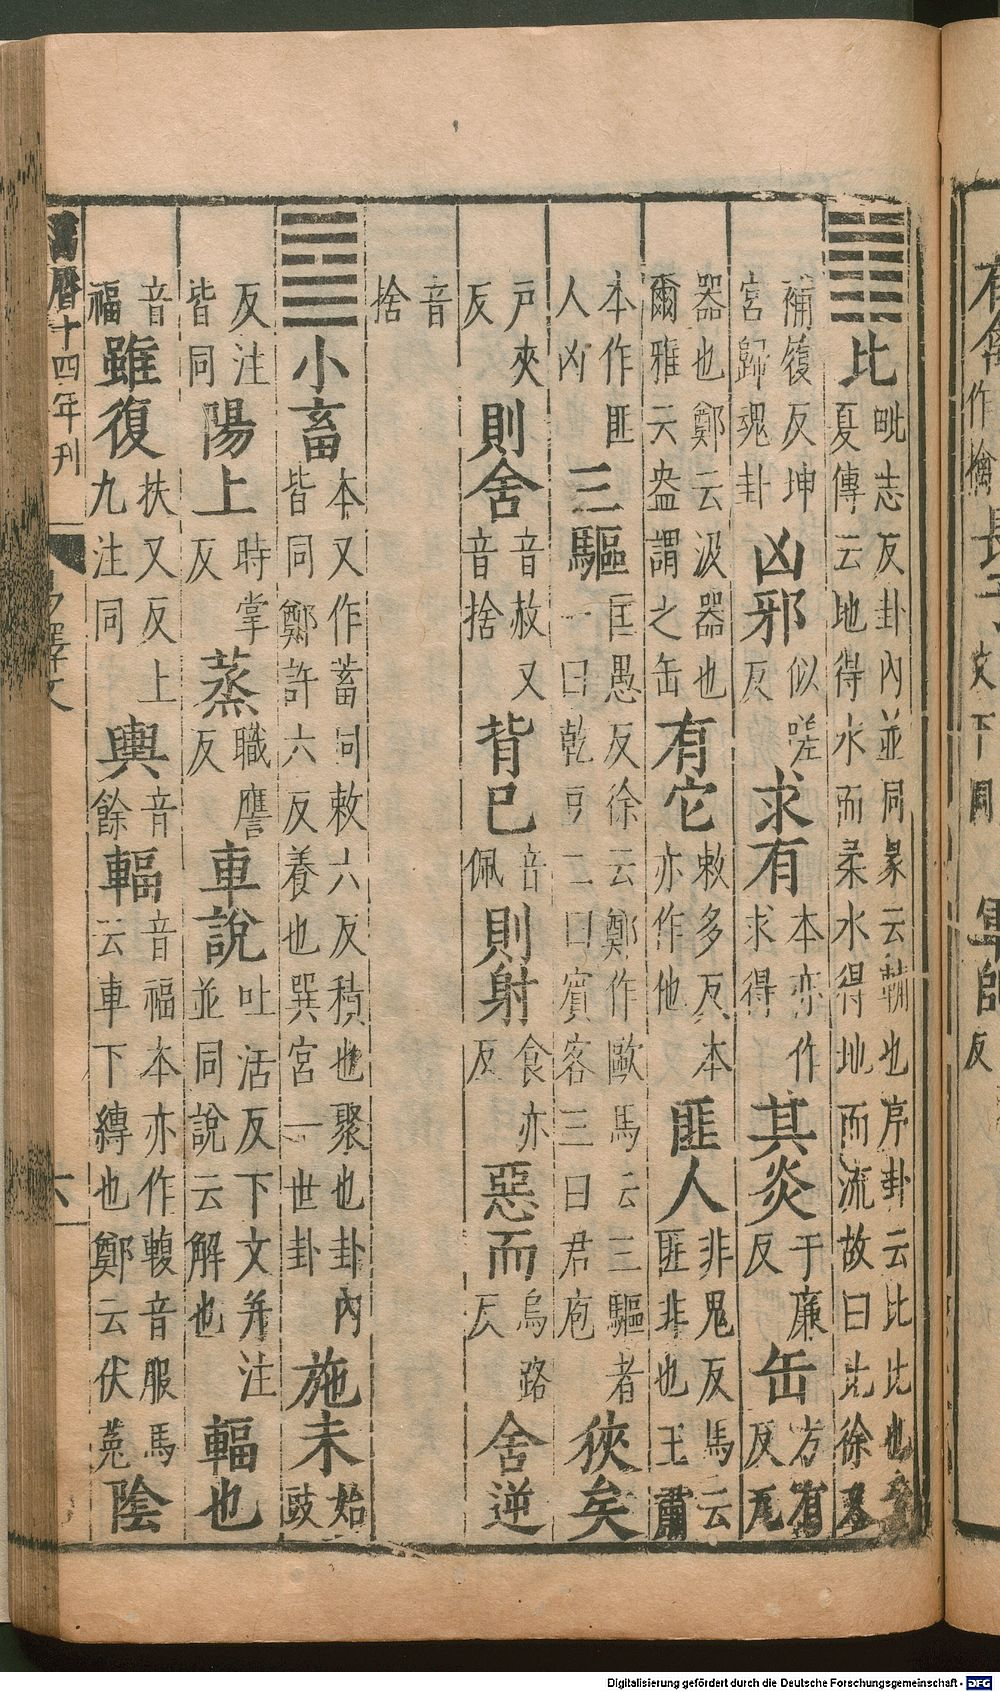 ䷇比毗志反卦內並同彖云輔也序卦云比比也
夏傳云地得水而柔水得地而流故曰比徐
補履反坤宮歸魂卦凶邪似嗟反求有本亦作求得其炎于廉反缶方有反瓦
器也鄭云汲器也爾雅云盎謂之缶有它敕多反本亦作他匪人非鬼反馬云匪非也王肅
本作匪人凶三驅匡愚反徐云鄭作敺馬云三驅者一曰乾豆二曰賓客三曰君庖狹矣
戶夾反則舍音赦又音捨背已音佩則射食亦反惡而烏路反舍逆
音捨
䷈小畜本又作蓄同敕六反積也聚也卦內皆同鄭許六反養也巽宮一世卦施未始豉
反注皆同陽上時掌反蒸職膺反車說吐活反下文并注並同說云解也輻也
音福雖復扶又反上九注同輿音餘輻音福本亦作輹音服馬云車下縛也鄭云伏菟陰
萬曆十四年刊
易釋文
六
Digitalisierung gefördert durch die Deutsche Forschungsgemeinschaft - DFG